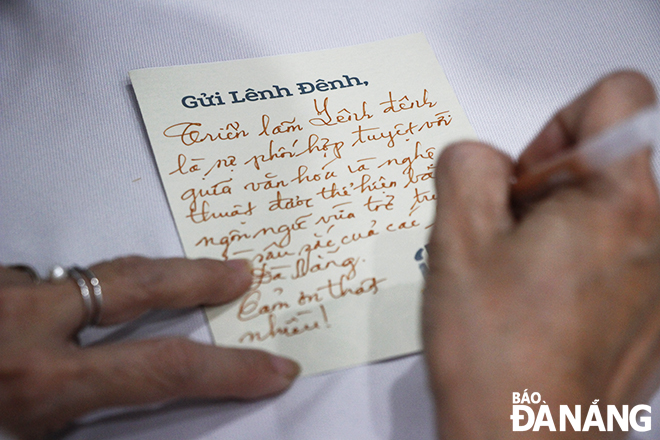 Gửi Lênh Đênh,
Triển lãm Lênh đênh
là sự phối hợp tuyệt vời
giữa văn hóa và nghệ
thuật được thể hiện bằ
ngôn ngữ vừa trẻ tru
sâu sắc của các
Đà Nẵng.
Cảm ơn thật
nhiều!
BÁO
ĐÀ NẴNG